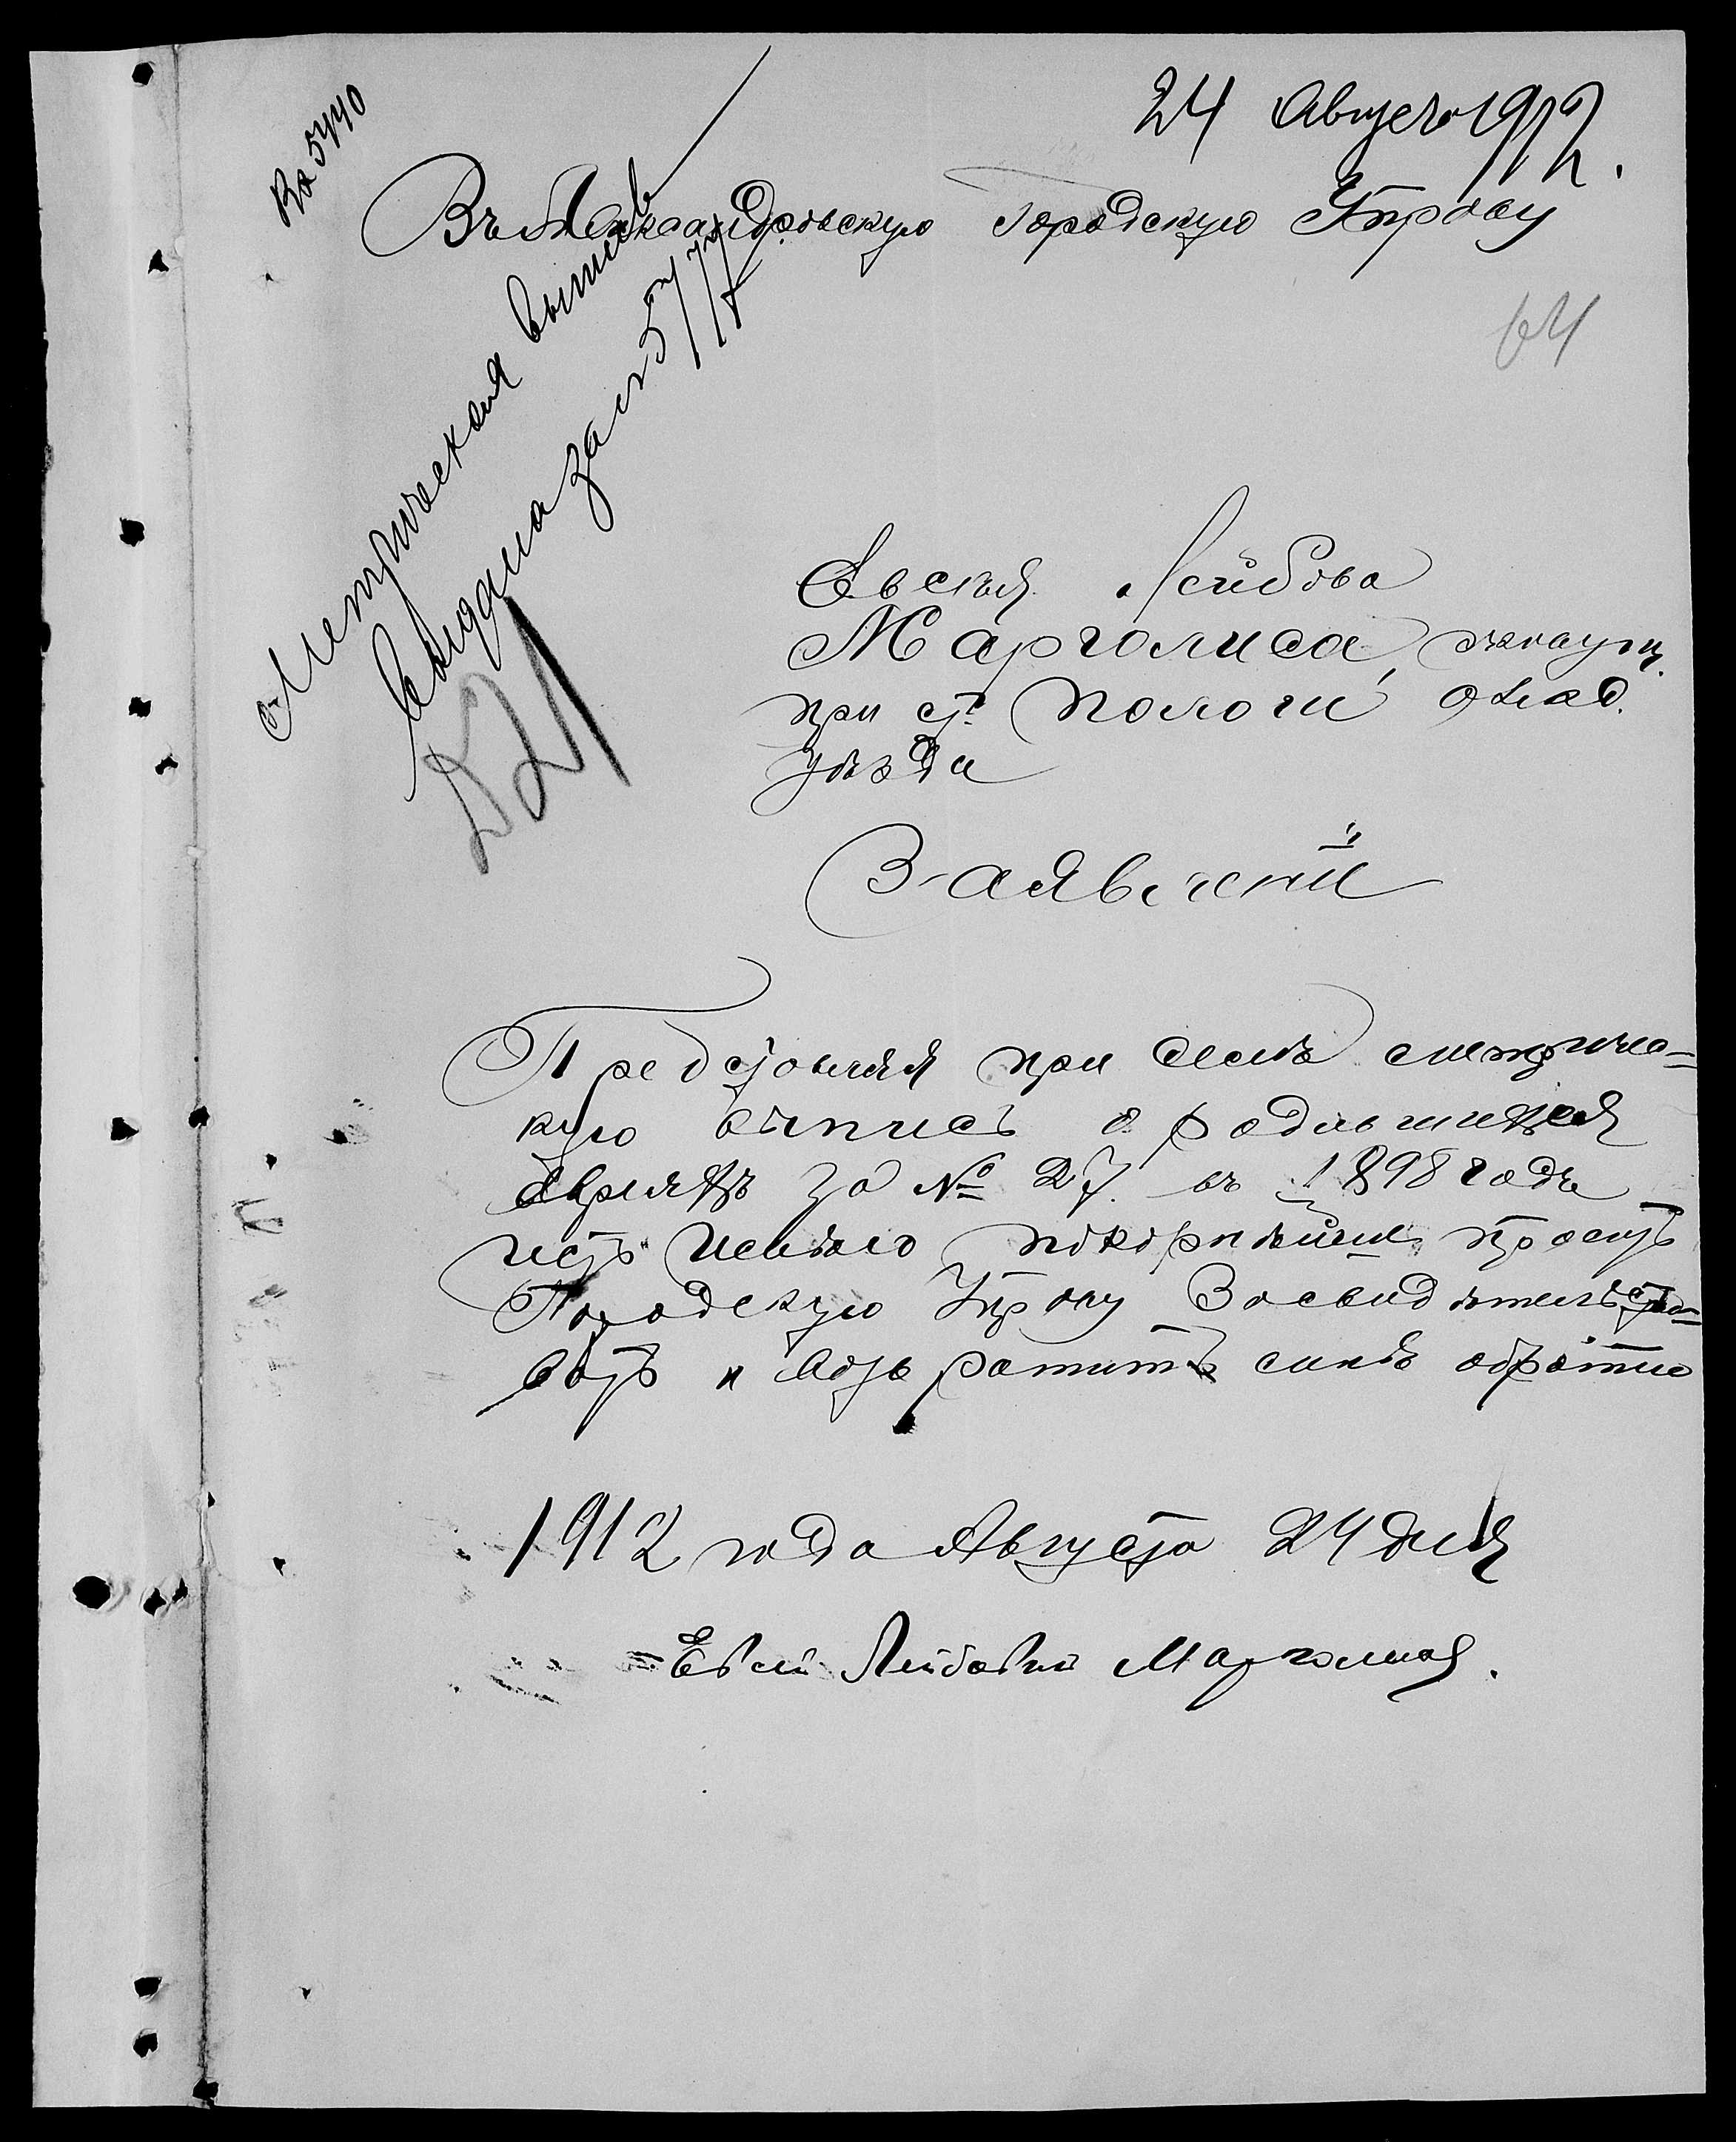 Вх 5440
24 Августа 1912.
Въ Александровскую Городскую Управу
64
Метрическая выпись
выдана за № 5777
Евсѣя Лейбова
Марголиса,
при ст. Пологи,
уѣзда
Заявленіе
Представляя при семъ метричес-
кую выпись о родившихся
евреяхъ за № 27 въ 1898 годъ
честь имѣю покорнѣйше просить
Городскую Управу Засвидѣтельство-
вать и возвратить мнѣ обратно
1912 года Августа 24 дня
Евсей Лейбовичъ Марголисъ.